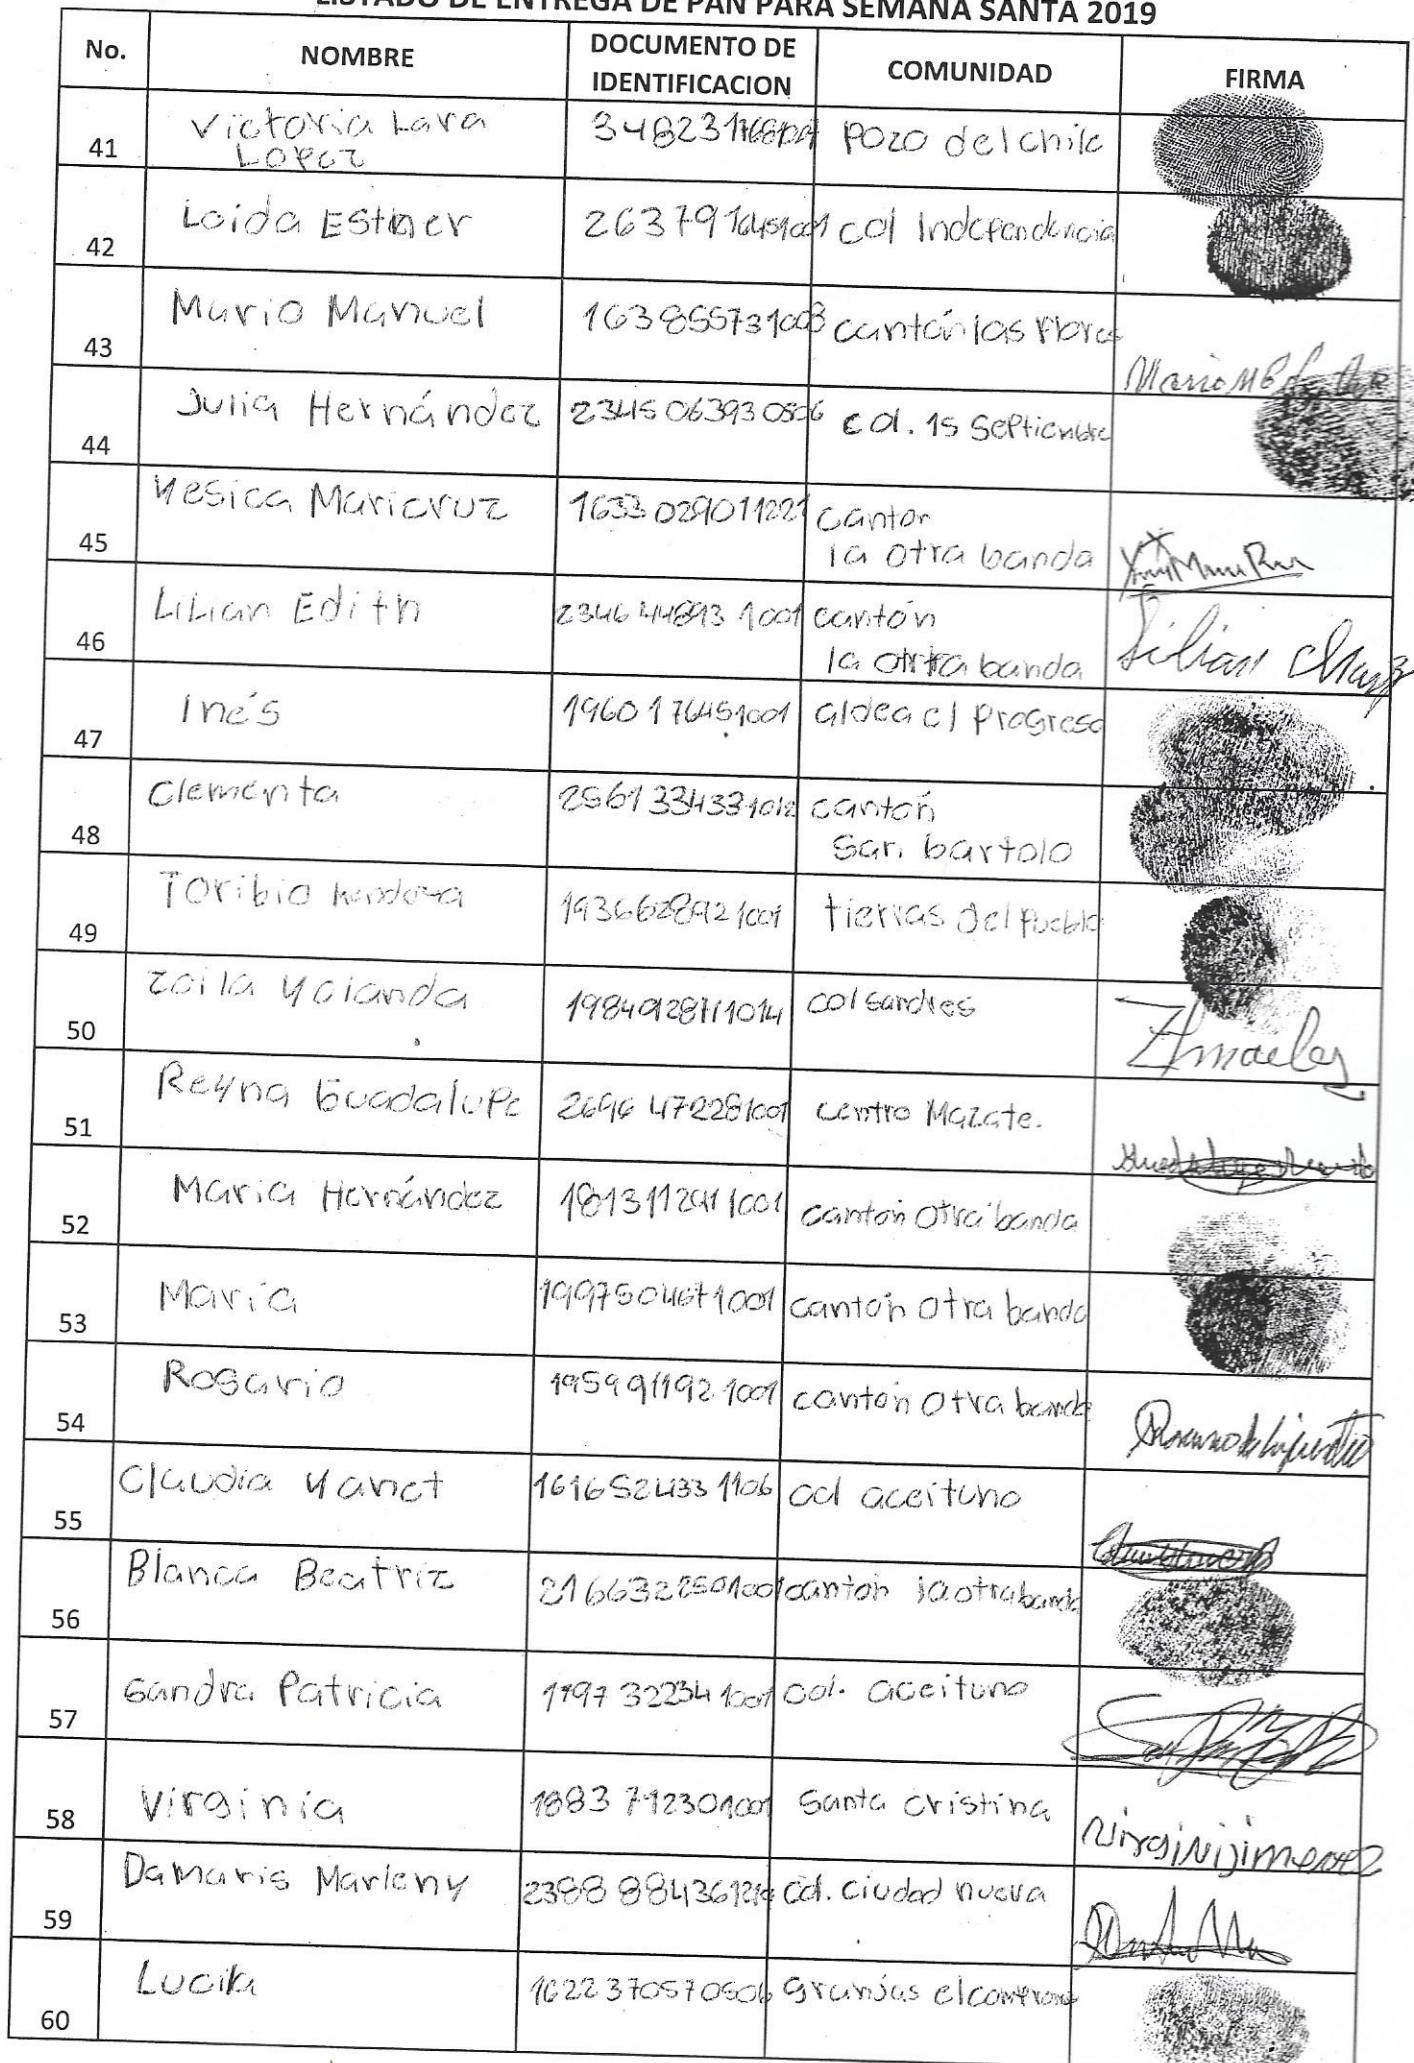 LISTADO DE ENTREGA DE PAN PARA SEMANA SANTA 2019
No. NOMBRE DOCUMENTO DE IDENTIFICACION COMUNIDAD FIRMA
41 Victoria Lara Lopez pozo del chile
42 Loida Esther col Independencia
43 Mario Manuel 163855731003 cantón las Flores
44 Julia Hernández 2345063930506 col. 15 Septiembre
45 Yesica Maricruz 1633029011221 canton la otra banda
46 Lilian Edith 2346448931001 cantón la otra banda Lilian
47 Inés 1960176451001 aldea el progreso
48 Clementa 2561334331012 cantón San bartolo
49 Toribio Mendoza 1936628921001 tierras del pueblo
50 Zoila Yolanda col sandres
51 Reyna Guadalupe 2696472281001 centro Mazate.
52 Maria Hernández 1813112911001 cantón otra banda
53 Maria 1997504671001 cantón otra banda
54 Rosario 1959911921001 cantón otra banda
55 Claudia Yanet 1616524331106 col aceituno
56 Blanca Beatriz 2166322501001 canton la otra banda
57 Sandra Patricia col. aceituno
58 Virginia 1883712301001 Santa cristina
59 Damaris Marleny col. ciudad nueva
60 Lucila granjas